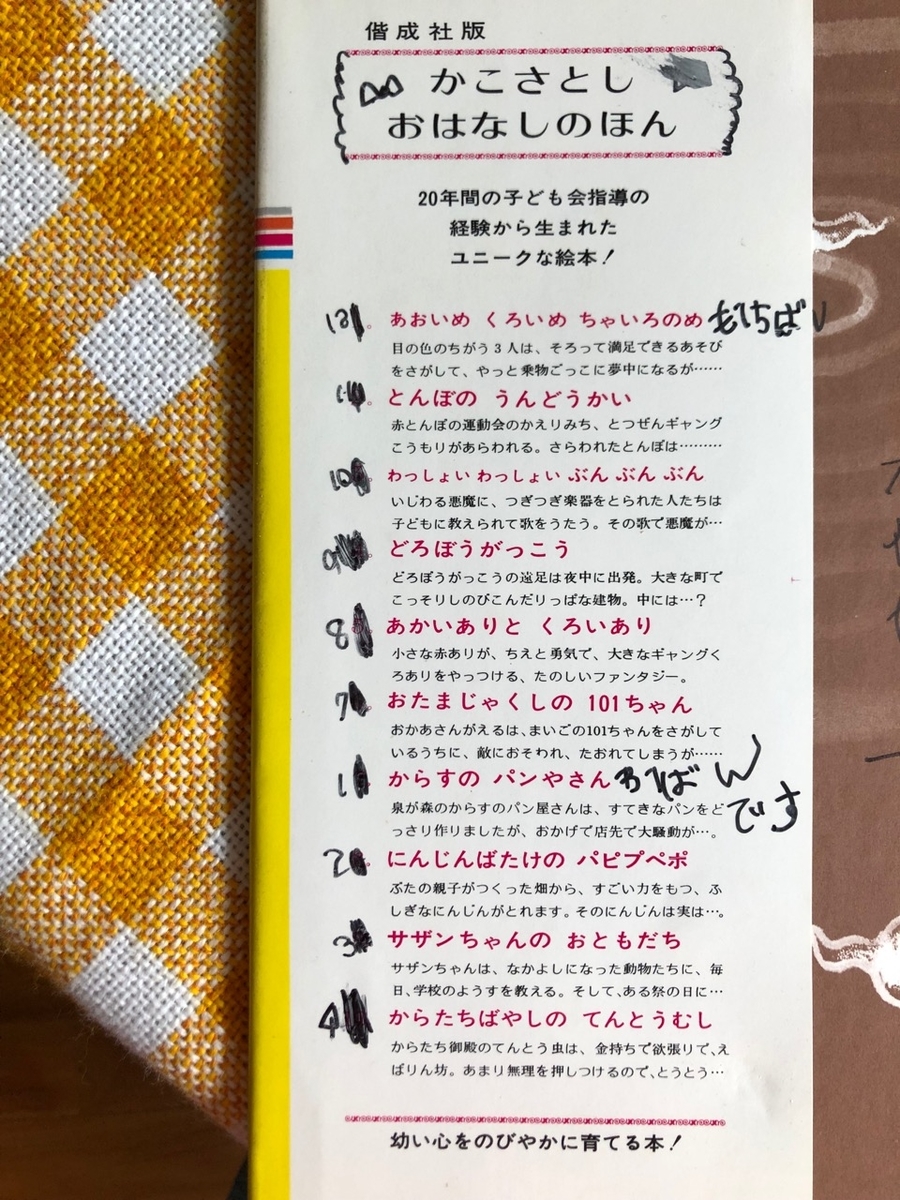 偕成社版
かこさとし
おはなしのほん
20年間の子ども会指導の
経験から生まれた
ユニークな絵本!
あおいめ くろいめ ちゃいろのめ
目の色のちがう3人は、そろって満足できるあそび
をさがして、やっと乗物ごっこに夢中になるが……
とんぼの うんどうかい
赤とんぼの運動会のかえりみち、とつぜんギャング
こうもりがあらわれる。さらわれたとんぼは………
10 わっしょい わっしょい ぶん ぶん ぶん
いじわる悪魔に、つぎつぎ楽器をとられた人たちは
子どもに教えられて歌をうたう。その歌で悪魔が…
9 どろぼうがっこう
どろぼうがっこうの遠足は夜中に出発。大きな町で
こっそりしのびこんだりっぱな建物。中には…?
8 あかいありと くろいあり
小さな赤ありが、ちえと勇気で、大きなギャングく
ろありをやっつける、たのしいファンタジー。
7 おたまじゃくしの 101ちゃん
おかあさんがえるは、まいごの101ちゃんをさがして
いるうちに、敵におそわれ、たおれてしまうが……
1 からすの パンやさん
泉が森のからすのパン屋さんは、すてきなパンをど
です
っさり作りましたが、おかげで店先で大騒動が…。
2 にんじんばたけの パピプペポ
ぶたの親子がつくった畑から、すごい力をもつ、ふ
しぎなにんじんがとれます。そのにんじんは実は…。
3 サザンちゃんの おともだち
サザンちゃんは、なかよしになった動物たちに、毎
日、学校のようすを教える。そして、ある祭の日に…
4 からたちばやしの てんとうむし
からたち御殿のてんとう虫は、金持ちで欲張りで、え
ばりん坊。あまり無理を押しつけるので、とうとう…
幼い心をのびやかに育てる本!